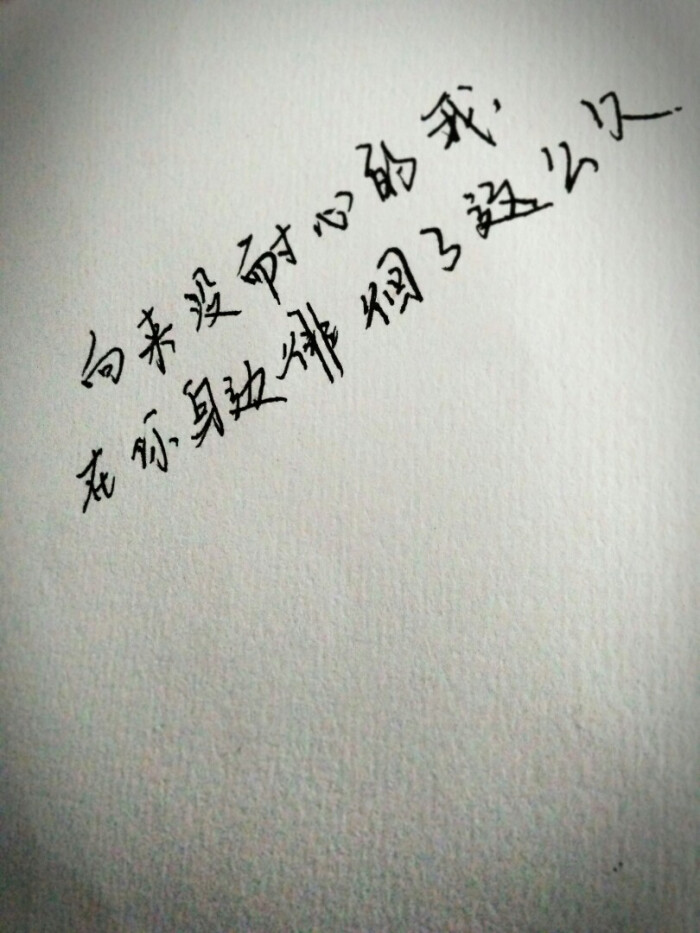 向来没耐心的我，
在你身边徘徊了这么久